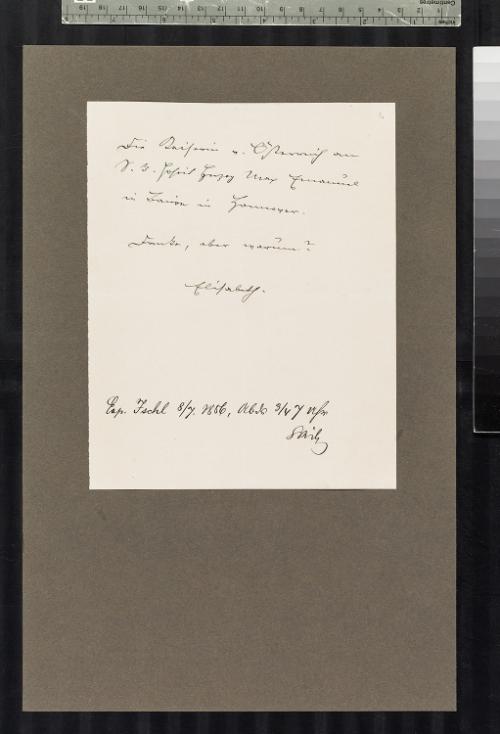 Die Kaiserin v. Österreich an
S. K. Hoheit Herzog Max Emanuel
in Baiern in Hannover.
Danke, aber warum?
Elisabeth.
Exp. Ischl 8/7. 1886, Abds 3/4 7 Uhr